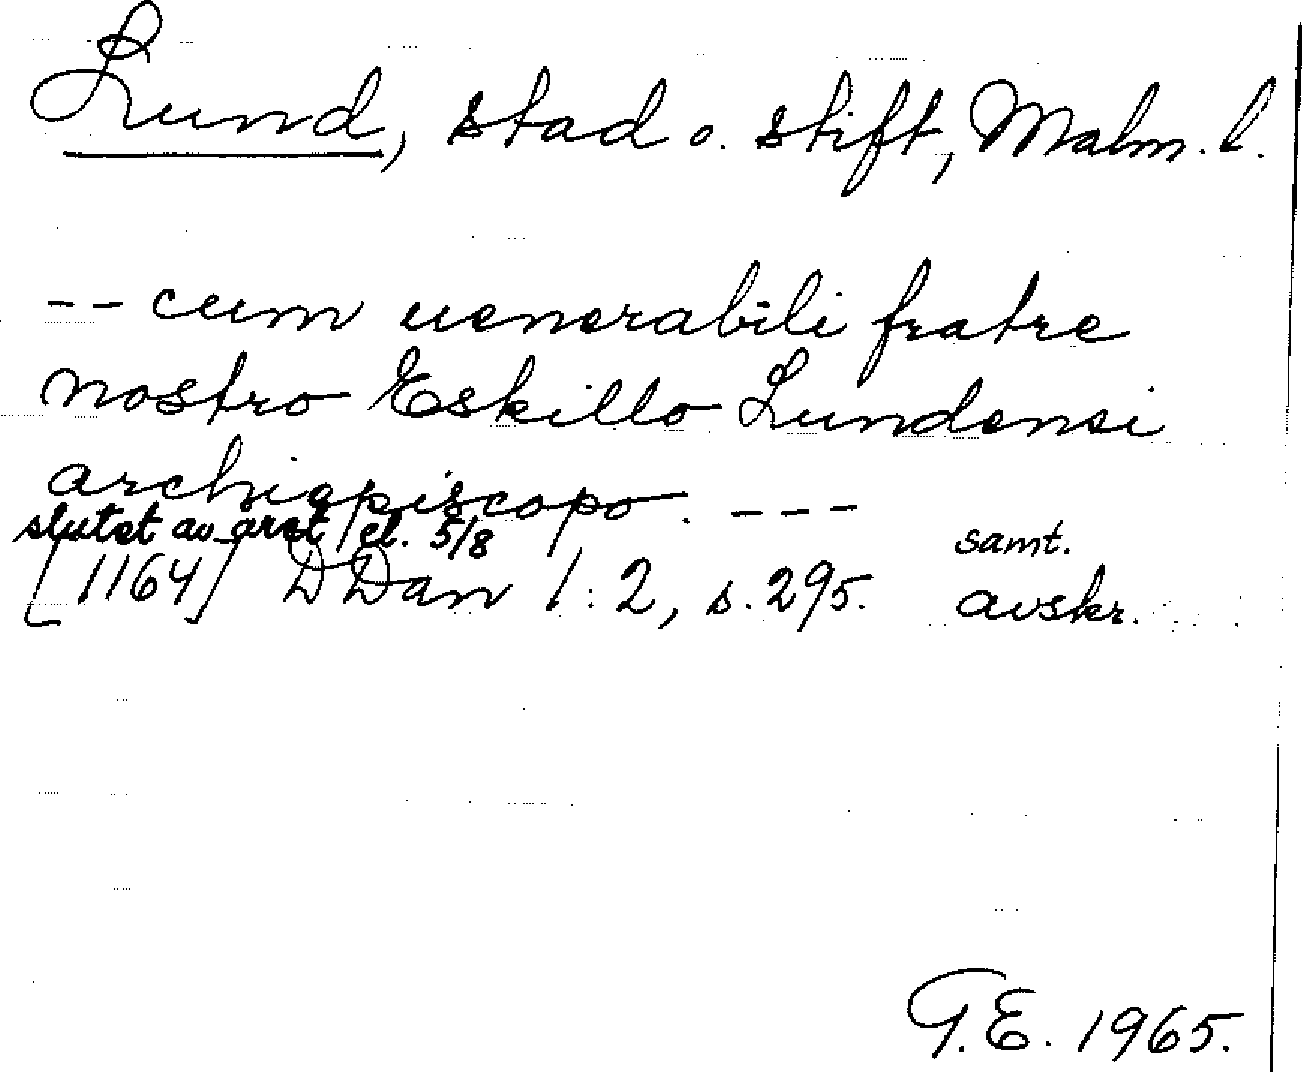 Lund, stad o. stift, Malm. l.
-- cum uenerabili fratre
nostro Eskillo Lundensi
archiepiscopo. ---
slutet av året / el. 5/8
[1164] DDan 1:2, s. 295. samt. avskr.
G.E. 1965.